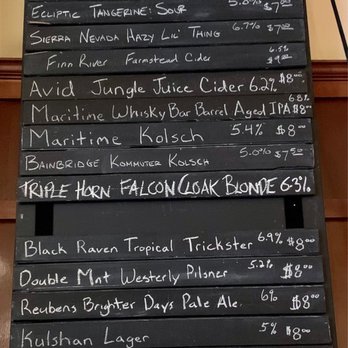 Ecliptic Tangerine: Sour 5.0% $7.00
Sierra Nevada Hazy Lil' Thing 6.7% $7.00
Finn River Farmstead Cider 6.5% $9.00
Avid Jungle Juice Cider 6.2% $8.00
Maritime Whisky Bar Barrel Aged IPA 6.8% $8.00
Maritime Kolsch 5.4% $8.00
Bainbridge Kommuter Kolsch 5.0% $7.50
TRIPLE HORN FALCON CLOAK BLONDE 6.2%
Black Raven Tropical Trickster 6.9% $8.00
Double Mnt Westerly Pilsner 5.2% $8.00
Reubens Brighter Days Pale Ale. 6% $8.00
Kulshan Lager 5% $8.00